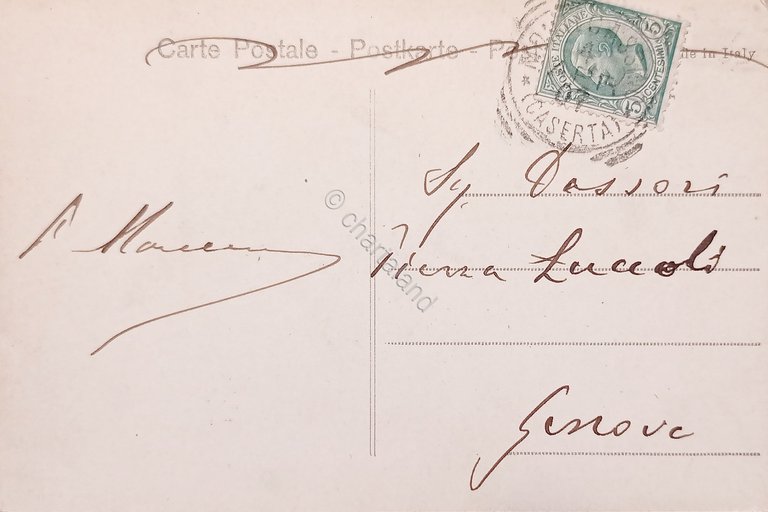 Carte Postale - Postkarte - in Italy
POSTE ITALIANE
CENTESIMI
5 5
(CASERTA)
Sig Dassori
Piazza Luccoli
Genova
© chartaland